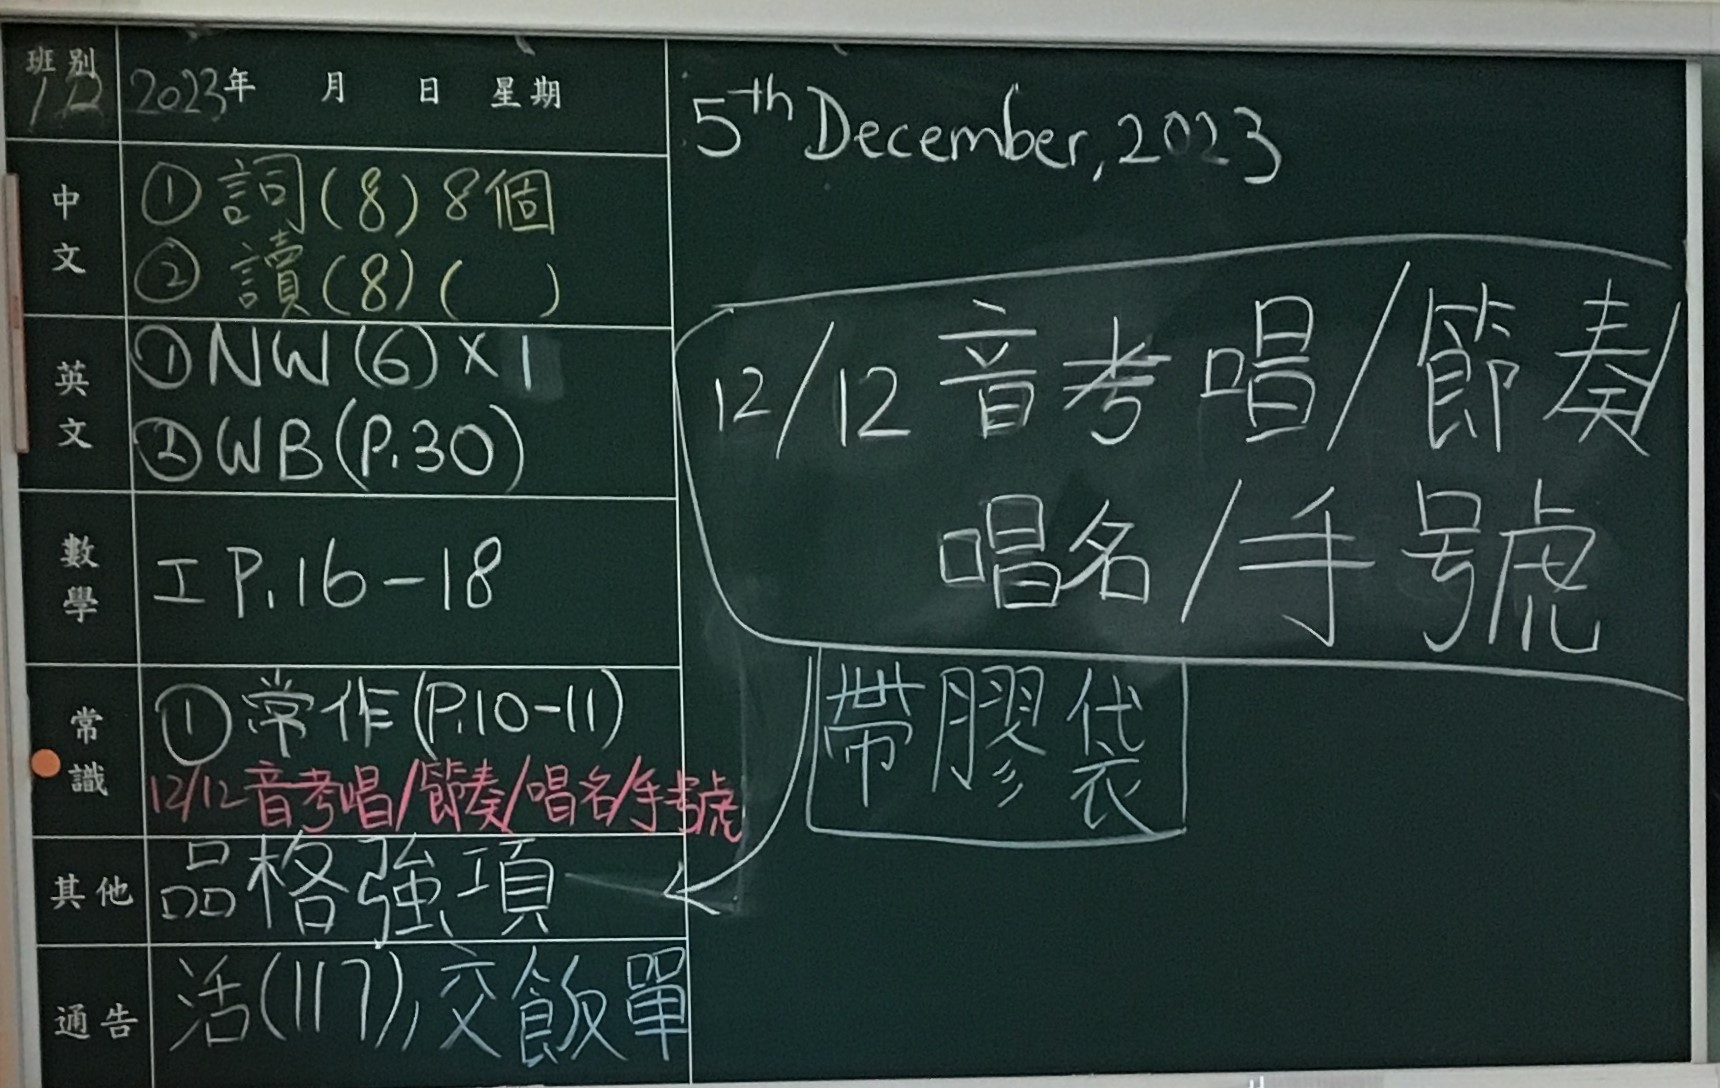 班別 1D 2023年 月 日 星期
中文 ①詞(8)8個
②讀(8)( )
英文 ①NW(6)×1
②WB(P.30)
數學 工P.16-18
常識 ①常作(P.10-11)
12/12音考唱/節奏/唱名/手號
其他 品格強項
通告 活(117),交飯單
5th December, 2023
12/12音考唱/節奏/
唱名/手號
帶膠袋